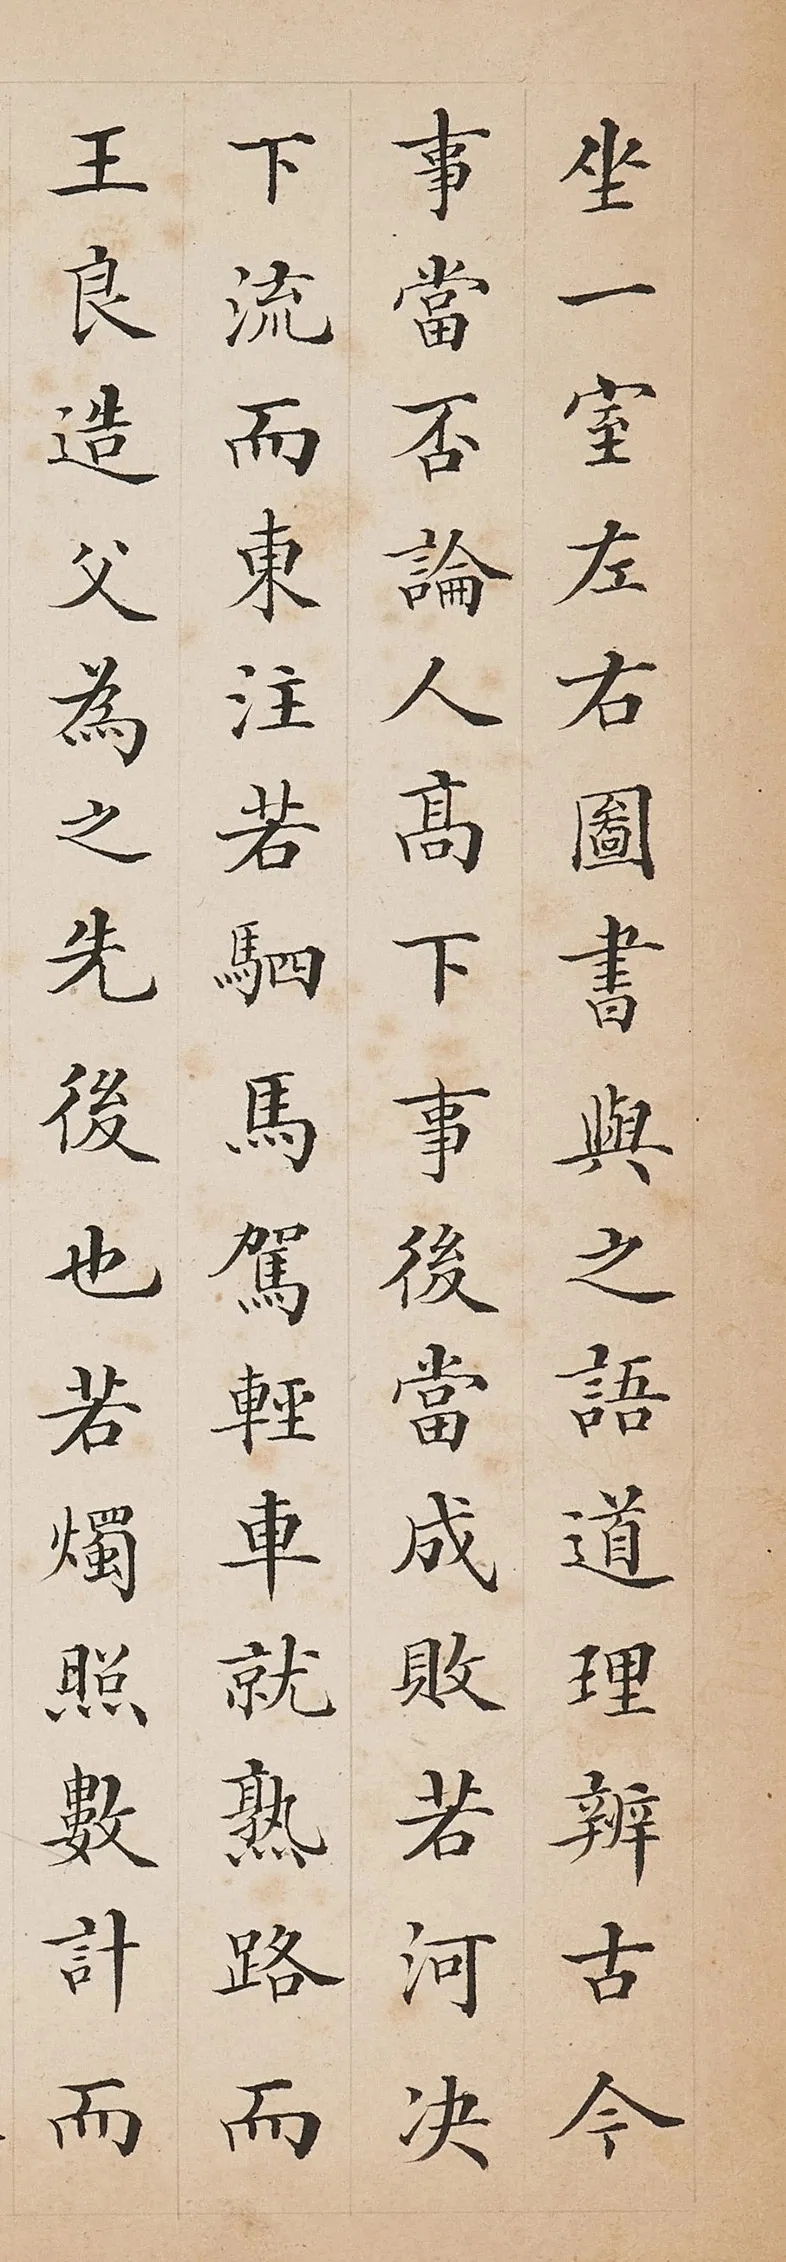 坐一室左右圖書與之語道理辨古今
事當否論人高下事後當成敗若河决
下流而東注若駟馬駕輕車就熟路而
王良造父為之先後也若燭照數計而